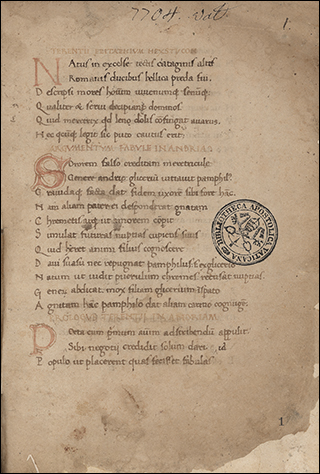 7704. Vat.
1
TERENTII EPITAPHIUM
Natus in excelse tectis cartaginis alte
Romanis ducibus bellica preda fui.
Descripsi mores hominum iuvenumq; senumq;
Qualiter & servi decipiant dominos
Quid meretrix qd leno dolis confingat avarus.
Hec quicumq; legit sic puto cautus erit.
ARGUMENTUM FABULE IN ANDRIAS
Sororem falso creditam meretricule
Genere andrie glicerium vitiavit pamphil'.
Gravidaq; facta dat fidem uxore sibi fore hac.
Nam aliam pater ei desponderat gnatam
Chremetis atq; ut amorem copit
Simulat futuras nuptias cupiens suus
Quid haberet animi filius cognoscere
Davi suasu nec repugnat pamphilus
Natum ut vidit puerulum chremes recusat nuptias.
Generu abdicat mox filiam glicerium
Agnitam hac pamphilo dat aliam carino
Poeta cum primum anim ad scribendu appulit
Sibi negotii credidit solum dari
Populo ut placerent quas fecisset fabulas
BIBLIOTHECA APOSTOLICA VATICANA
1